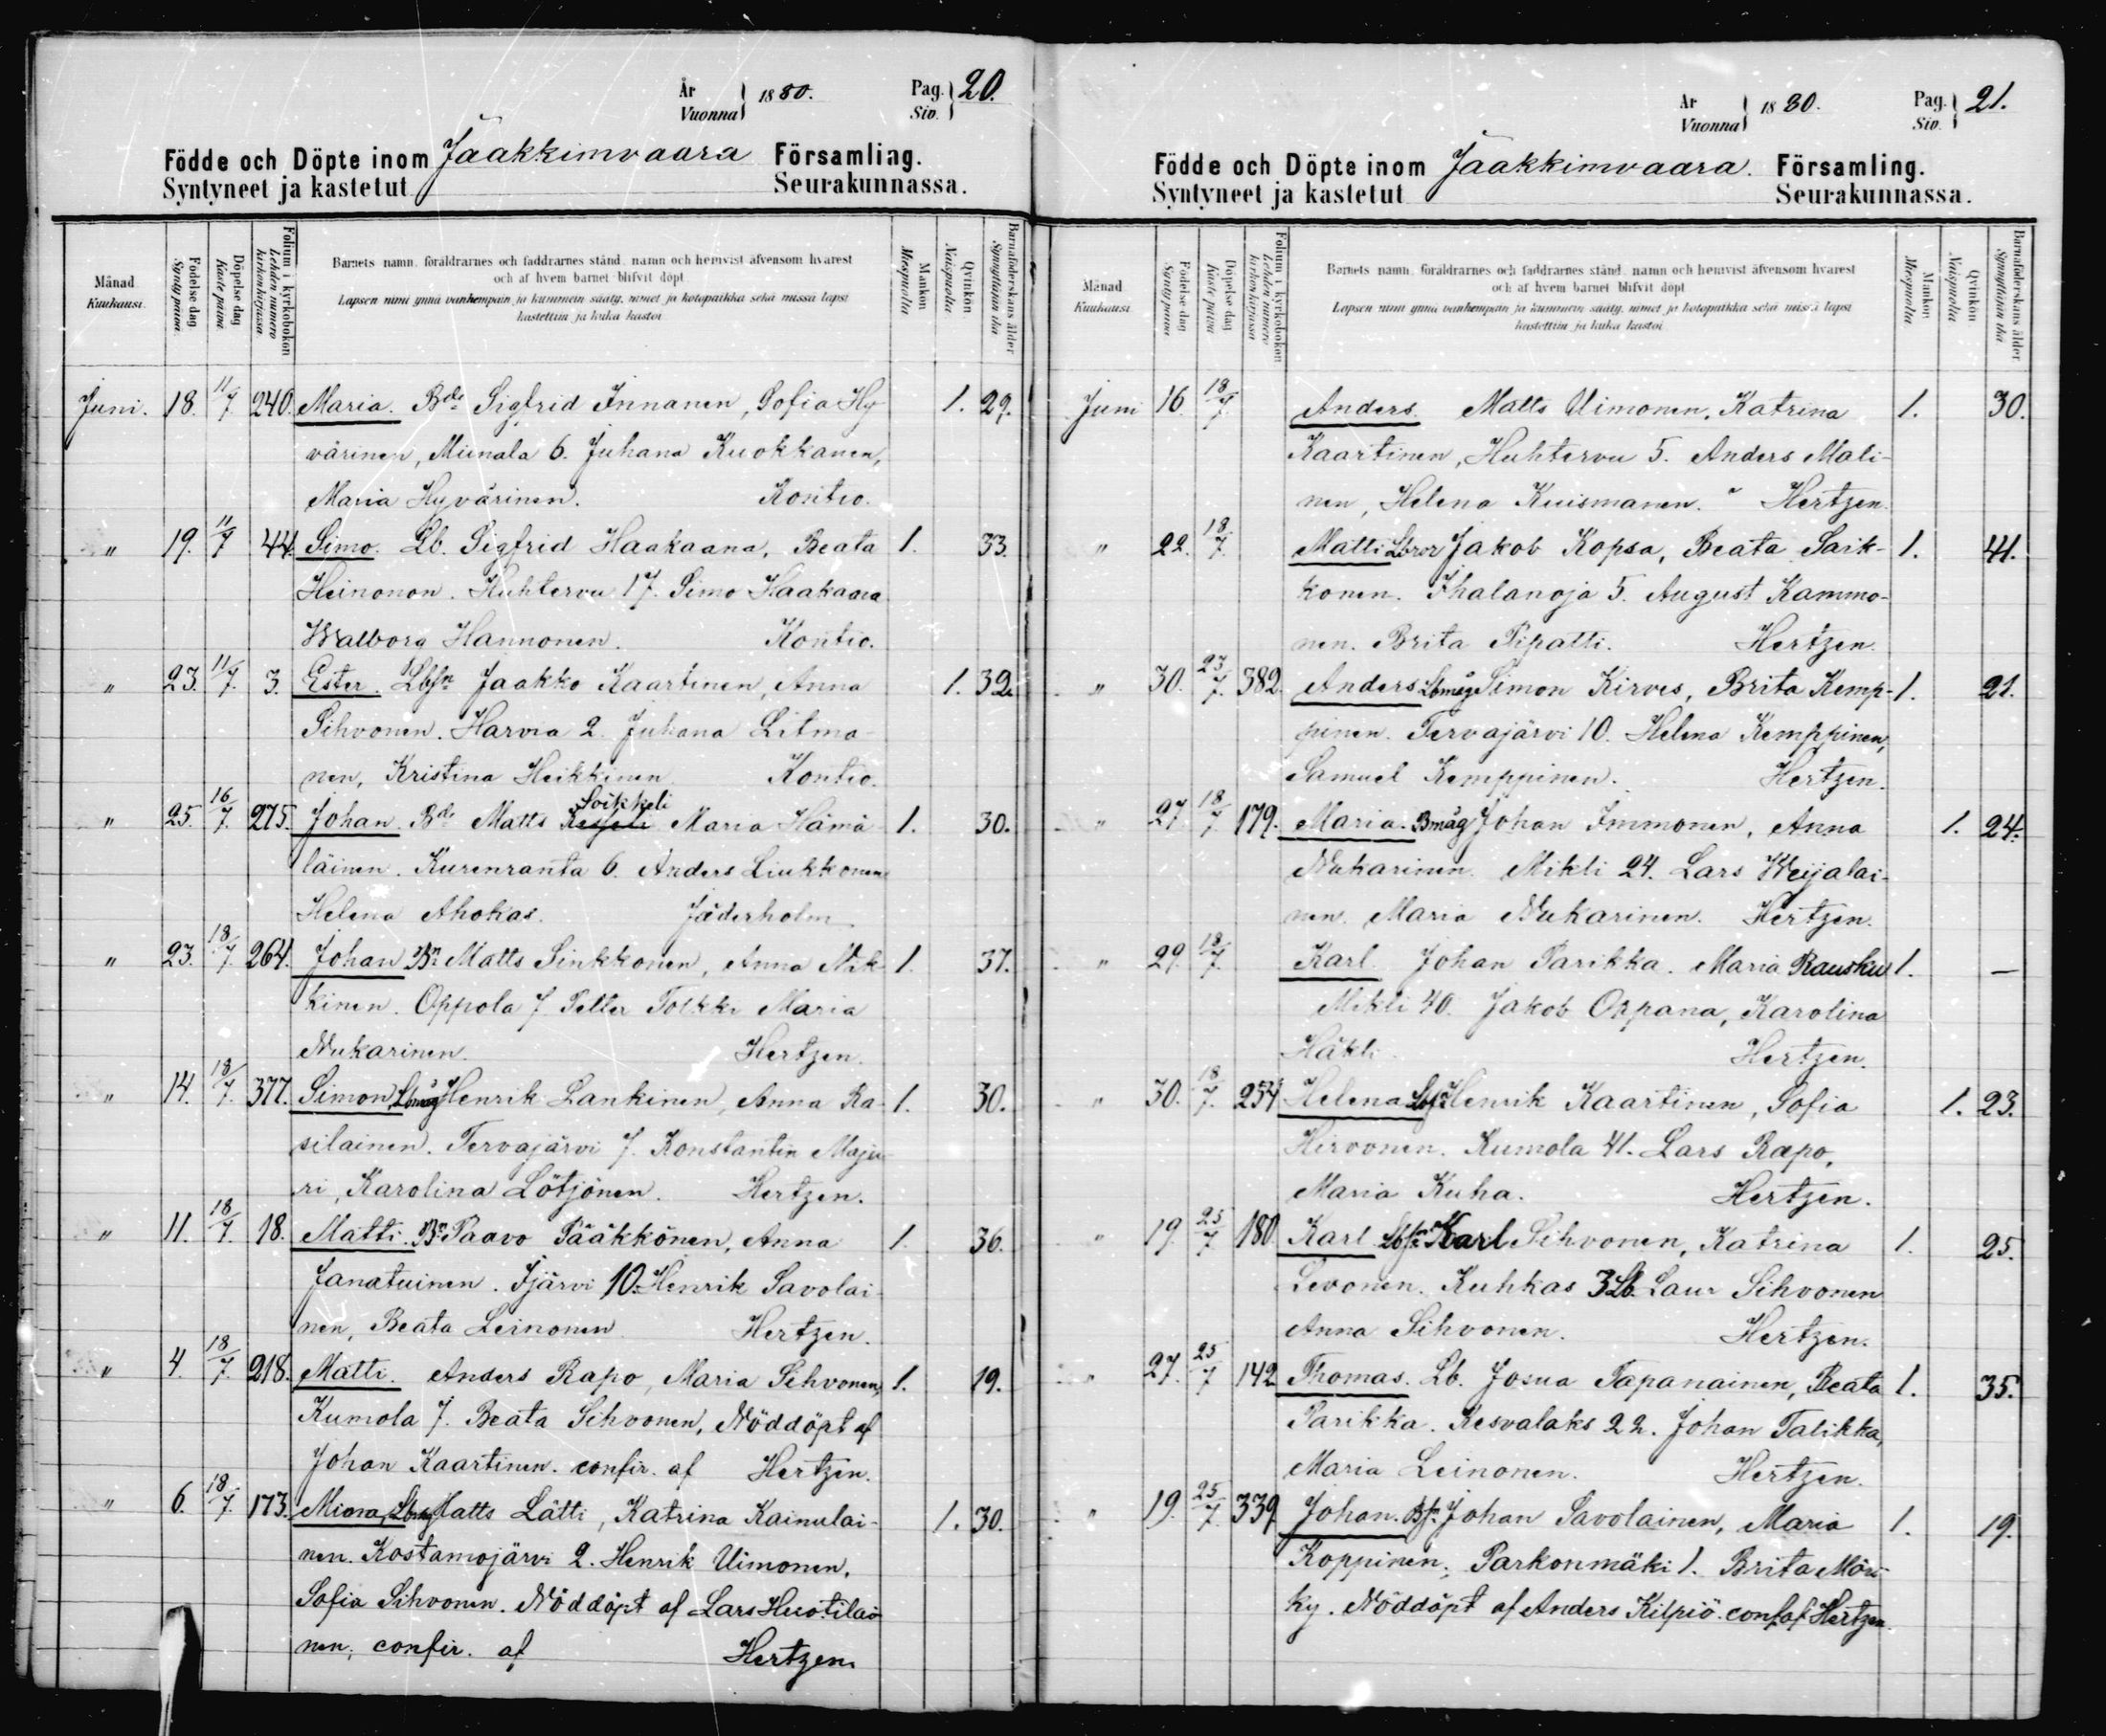 År
Vuonna } 1880. Pag.
Siv. } 20.
Födde och Döpte inom Jaakkimvaara Församling.
Syntyneet ja kastetut Seurakunnassa.
Månad
Kuukausi.
Födelse dag
Synty päiwä.
Döpelse dag
Kaste päiwä
Folium i kyrkoboken
Lehden numero
kirkonkirjassa
Barnets namn, föräldrarnes och faddrarnes stånd, namn och hemvist äfvensom hvarest
och af hvem barnet blifvit döpt.
Lapsen nimi ynnä vanhempain ja kummein sääty, nimet ja kotopaikka sekä missä lapsi
kastettiin ja kuka kastoi
Mankön
Miespuolia
Qvinkön
Naispuolia
Barnaföderskans ålder
Synnyttäjän ikä
Juni. 18. 11/7. 240. Maria. Bde Sigfrid Innanen, Sofia Hy- 1. 29.
värinen, Miinala 6. Juhana Kuokkanen,
Maria Hyvärinen. Kontio.
" 19. 11/7 44. Simo. Lb. Sigfrid Haakaana, Beata 1. 33.
Heinonon. Huhtervu 17. Simo Haakaana
Walborg Hannonen. Kontio.
" 23. 11/7. 3. Ester. Lbsn Jaakko Kaartinen, Anna 1. 32.
Sihvonen. Harvia 2. Juhana Litma-
nen, Kristina Heikkinen Kontio.
Soikkeli
" 25. 16/7. 275. Johan. Bde Matts Maria Hämä- 1. 30.
läinen. Kurenranta 6. Anders Liukkonen
Helena Ahokas. Jäderholm
" 23. 18/7. 264. Johan Bn Matts Sinkkonen, Anna Mik- 1. 37.
kinen. Oppola 7 Petter Tolkki Maria
Nukarinen. Hertzen.
" 14. 18/7. 377. Simon, Lbmåg Henrik Lankinen, Anna Ra- 1. 30.
silainen. Tervajärvi 7. Konstantin Maju-
ri, Karolina Lötjönen. Hertzen.
" 11. 18/7. 18. Matti. Bn Paavo Pääkkönen, Anna 1. 36.
Janatuinen. Ijärvi 10. Henrik Savolai-
nen, Beata Leinonen Hertzen.
" 4. 18/7. 218. Matti. Anders Rapo, Maria Sihvonen, 1. 19.
Kumola 7. Beata Sihvonen, Nöddöpt af
Johan Kaartinen. confir. af Hertzen.
" 6. 18/7. 173. Miina, Lbmåg Matts Lätti, Katrina Kainulai- 1. 30.
nen. Kostamojärvi 2. Henrik Uimonen,
Sofia Sihvonen. Nöddöpt af Lars Huotilai-
nen, confir. af Hertzen.
År
Vuonna } 1880. Pag.
Siv. } 21.
Födde och Döpte inom Jaakkimvaara. Församling.
Syntyneet ja kastetut Seurakunnassa.
Månad
Kuukausi.
Födelse dag
Synty päiwä
Döpelse dag
Kaste päiwä
Folium i kyrkoboken
Lehden numero
kirkonkirjassa
Barnets namn, föräldrarnes och faddrarnes stånd, namn och hemvist äfvensom hvarest
och af hvem barnet blifvit döpt
Lapsen nimi ynnä vanhempain ja kummein sääty, nimet ja kotopaikka sekä missä lapsi
kastettiin ja kuka kastoi
Mankön
Miespuolia
Qvinkön
Naispuolia
Barnaföderskans ålder
Synnyttäjän ikä
Juni 16. 18/7. Anders. Matts Uimonen, Katrina 1. 30.
Kaartinen, Huhtervu 5. Anders Mali-
nen, Helena Kuismanen. Hertzen.
" 22. 18/7. Matti Lbror Jakob Kopsa, Beata Saik- 1. 41.
konen. Ihalanoja 5. August Kammo-
nen. Brita Pipatti. Hertzen.
" 30. 23/7. 382. Anders Lbmåg Simon Kirves, Brita Kemp- 1. 21.
pinen. Tervajärvi 10. Helena Kemppinen,
Samuel Kemppinen. Hertzen.
" 27. 18/7 179. Maria. Bmåg Johan Immonen, Anna 1. 24.
Nukarinen. Mikli 24. Lars Weijalai-
nen. Maria Nukarinen. Hertzen.
" 29. 18/7. Karl. Johan Parikka. Maria Rausku 1. —
Mikli 40. Jakob Oppana, Karolina
Häkli. Hertzen.
" 30. 18/7. 254 Helena Lbsn Henrik Kaartinen, Sofia 1. 23.
Hirvonen. Kumola 41. Lars Rapo,
Maria Kuha. Hertzen.
" 19. 25/7 180 Karl. Lbsn Karl Sihvonen, Katrina 1. 25.
Levonen. Kuhkas 3 Lb. Laur Sihvonen
Anna Sihvonen. Hertzen.
" 27. 25/7 142 Thomas. Lb. Josua Tapanainen, Beata 1. 35.
Parikka. Kesvalaks 22. Johan Talikka,
Maria Leinonen. Hertzen.
" 19. 25/7. 339 Johan. Bsn Johan Savolainen, Maria 1. 19.
Koppinen, Parkonmäki 1. Brita Möri-
ky. Nöddöpt af Anders Kilpiö. conf. af Hertzen.